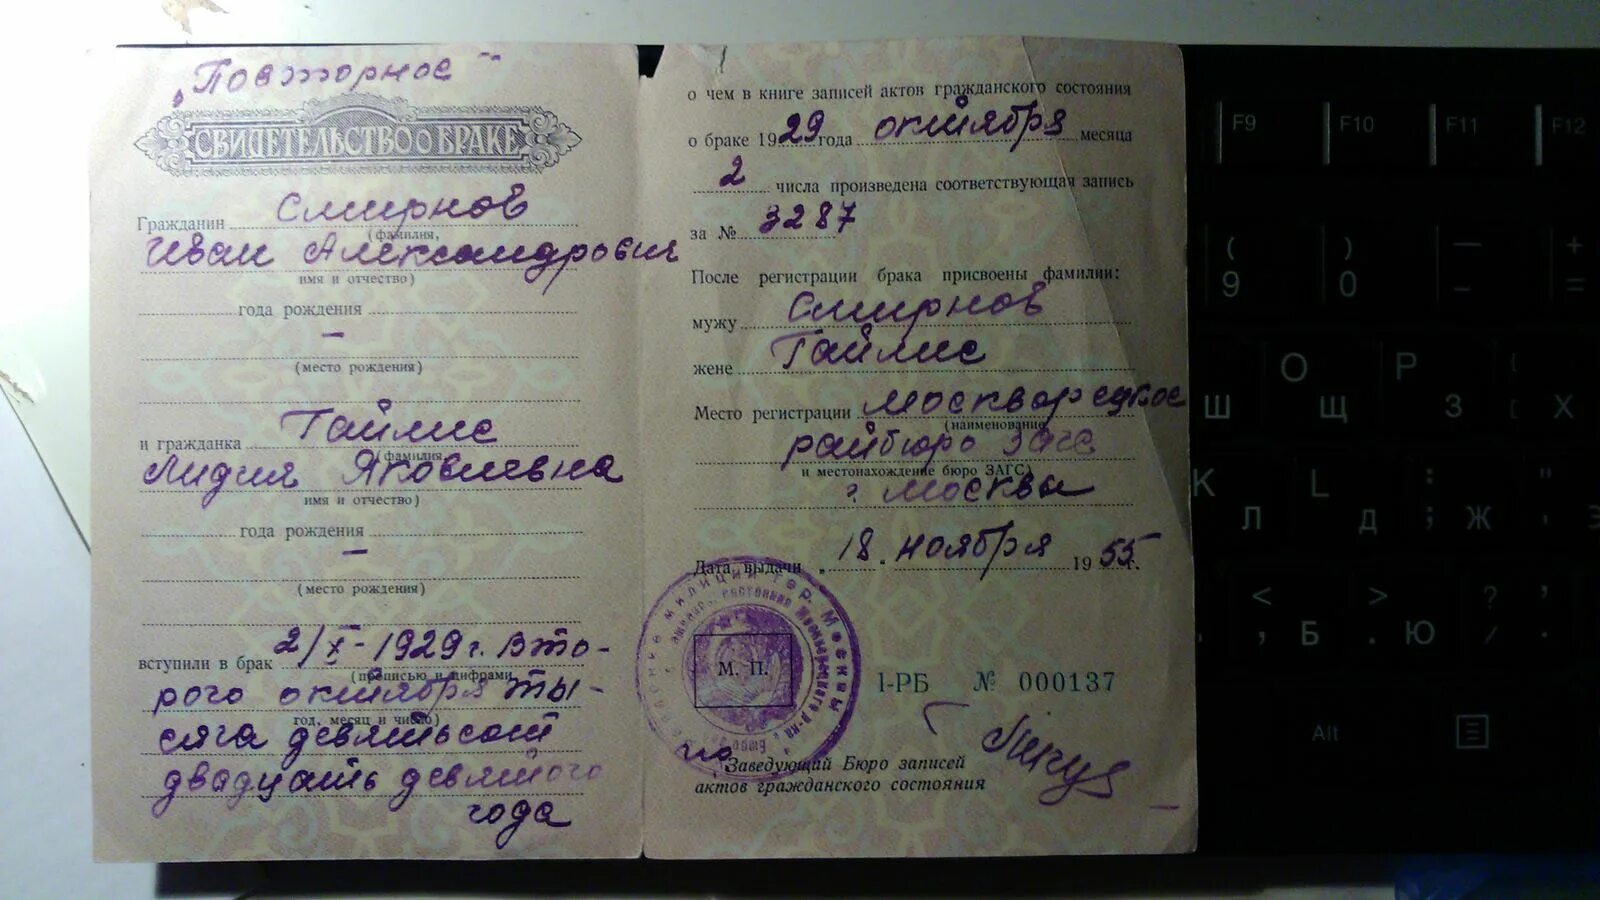 „Повторное"
СВИДЕТЕЛЬСТВО О БРАКЕ
Гражданин Смирнов
(фамилия,
Иван Александрович
имя и отчество)
года рождения
—
(место рождения)
и гражданка Гайлис
(фамилия,
Лидия Яковлевна
имя и отчество)
года рождения
—
(место рождения)
вступили в брак 2/X-1929 г. Вто-
(прописью и цифрами,
рого октября ты-
год, месяц и число)
сяча девятьсот
двадцать девятого
года
о чем в книге записей актов гражданского состояния
о браке 1929 года октября месяца
2 числа произведена соответствующая запись
за № 3287
После регистрации брака присвоены фамилии:
мужу Смирнов
жене Гайлис
Место регистрации Москворецкое
(наименование
райбюро Загса
и местонахождение бюро ЗАГС)
г. Москвы
Дата выдачи 18 ноября 1955 г.
М. П.
I-РБ № 000137
Заведующий Бюро записей
актов гражданского состояния
F9 F10 F11 F12
( ) — +
9 0 - =
O P
Ш Щ З Х
K L : "
Л Д ; Ж ' Э
< > ?
, Б . Ю /
Alt